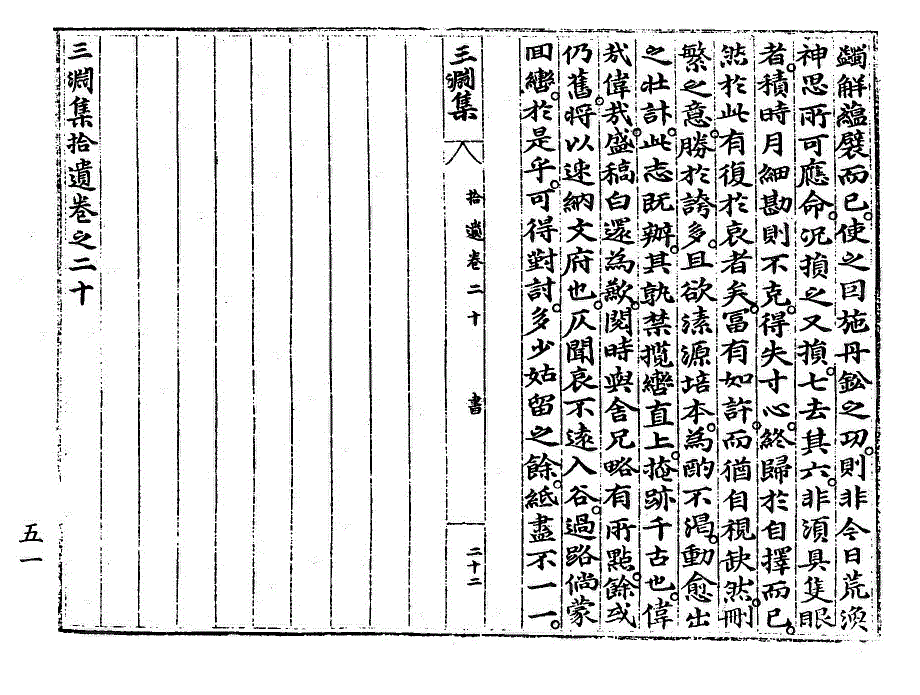 蠲解蘊襞而已。使之回施丹鈆之功。則非今日荒渙
神思所可應命。况損之又損。七去其六。非須具隻眼
者。積時月細勘則不克。得失寸心。終歸於自擇而已。
然於此有復於哀者矣。富有如許。而猶自視欿然。刪
繁之意。勝於誇多。且欲溹源培本。為酌不渴。動愈出
之壯計。此志既辦。其孰禁攬轡直上。掩跡千古也。偉
哉偉哉。盛稿白還為歎。閱時與舍兄略有所點。餘或
仍舊。將以迷納文府也。仄聞哀不遠入谷。過路倘蒙
回轡。於是乎。可得對討。多少姑留之餘。紙盡不一一。
三淵集
拾遺卷二十
書
二十二
三淵集拾遺卷之二十
五一